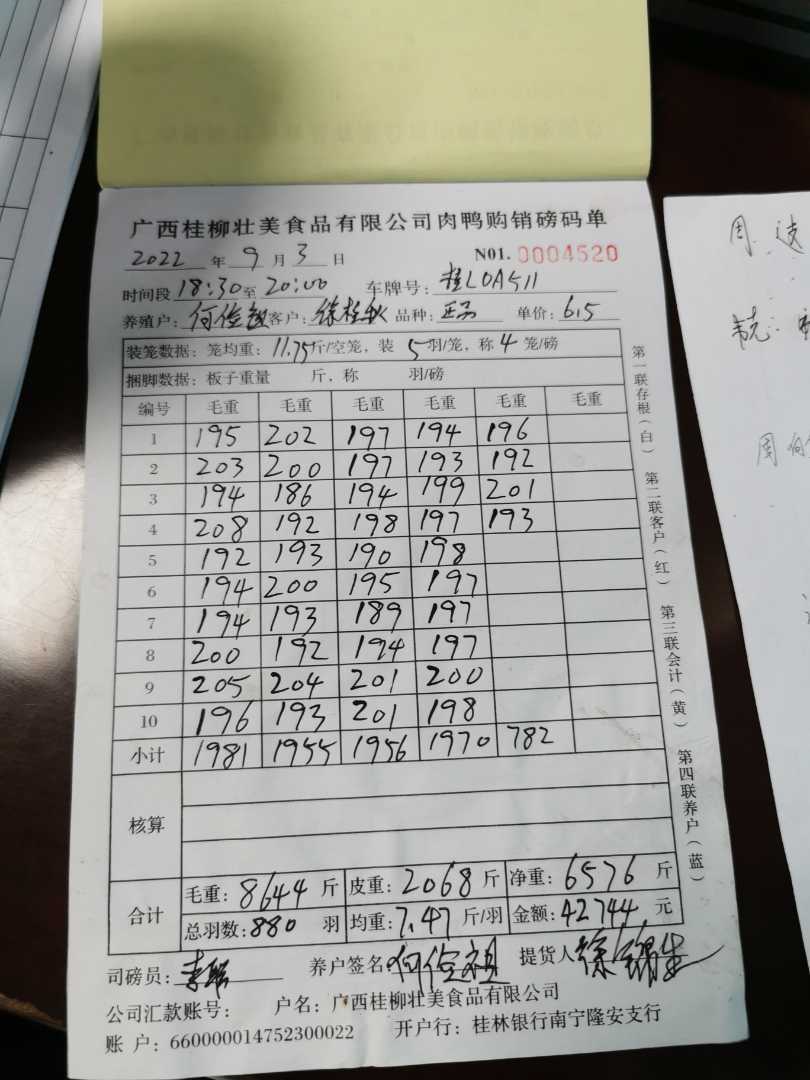 广西桂柳壮美食品有限公司肉鸭购销磅码单
2022 年 9 月 3 日 N01. 0004520
时间段 18:30 至 20:00 车牌号: 桂L0A511
养殖户: 何俭祖 客户: 徐桂秋 品种: 单价: 6.5
装笼数据: 笼均重: 11.75 斤/空笼, 装 5 羽/笼, 称 4 笼/磅
捆脚数据: 板子重量 斤, 称 羽/磅
编号 毛重 毛重 毛重 毛重 毛重 毛重
1 195 202 197 194 196
2 203 200 197 193 192
3 194 186 194 199 201
4 208 192 198 197 193
5 192 193 190 198
6 194 200 195 197
7 194 193 189 197
8 200 192 194 197
9 205 204 201 200
10 196 193 201 198
小计 1981 1955 1956 1970 782
核算
合计
毛重: 8644 斤 皮重: 2068 斤 净重: 6576 斤
总羽数: 880 羽 均重: 7.47 斤/羽 金额: 42744 元
司磅员: 养户签名 何俭祖 提货人 徐锦生
公司汇款账号: 户名: 广西桂柳壮美食品有限公司
账 户: 660000014752300022 开户行: 桂林银行南宁隆安支行
第一联存根(白) 第二联客户(红) 第三联会计(黄) 第四联养户(蓝)
周